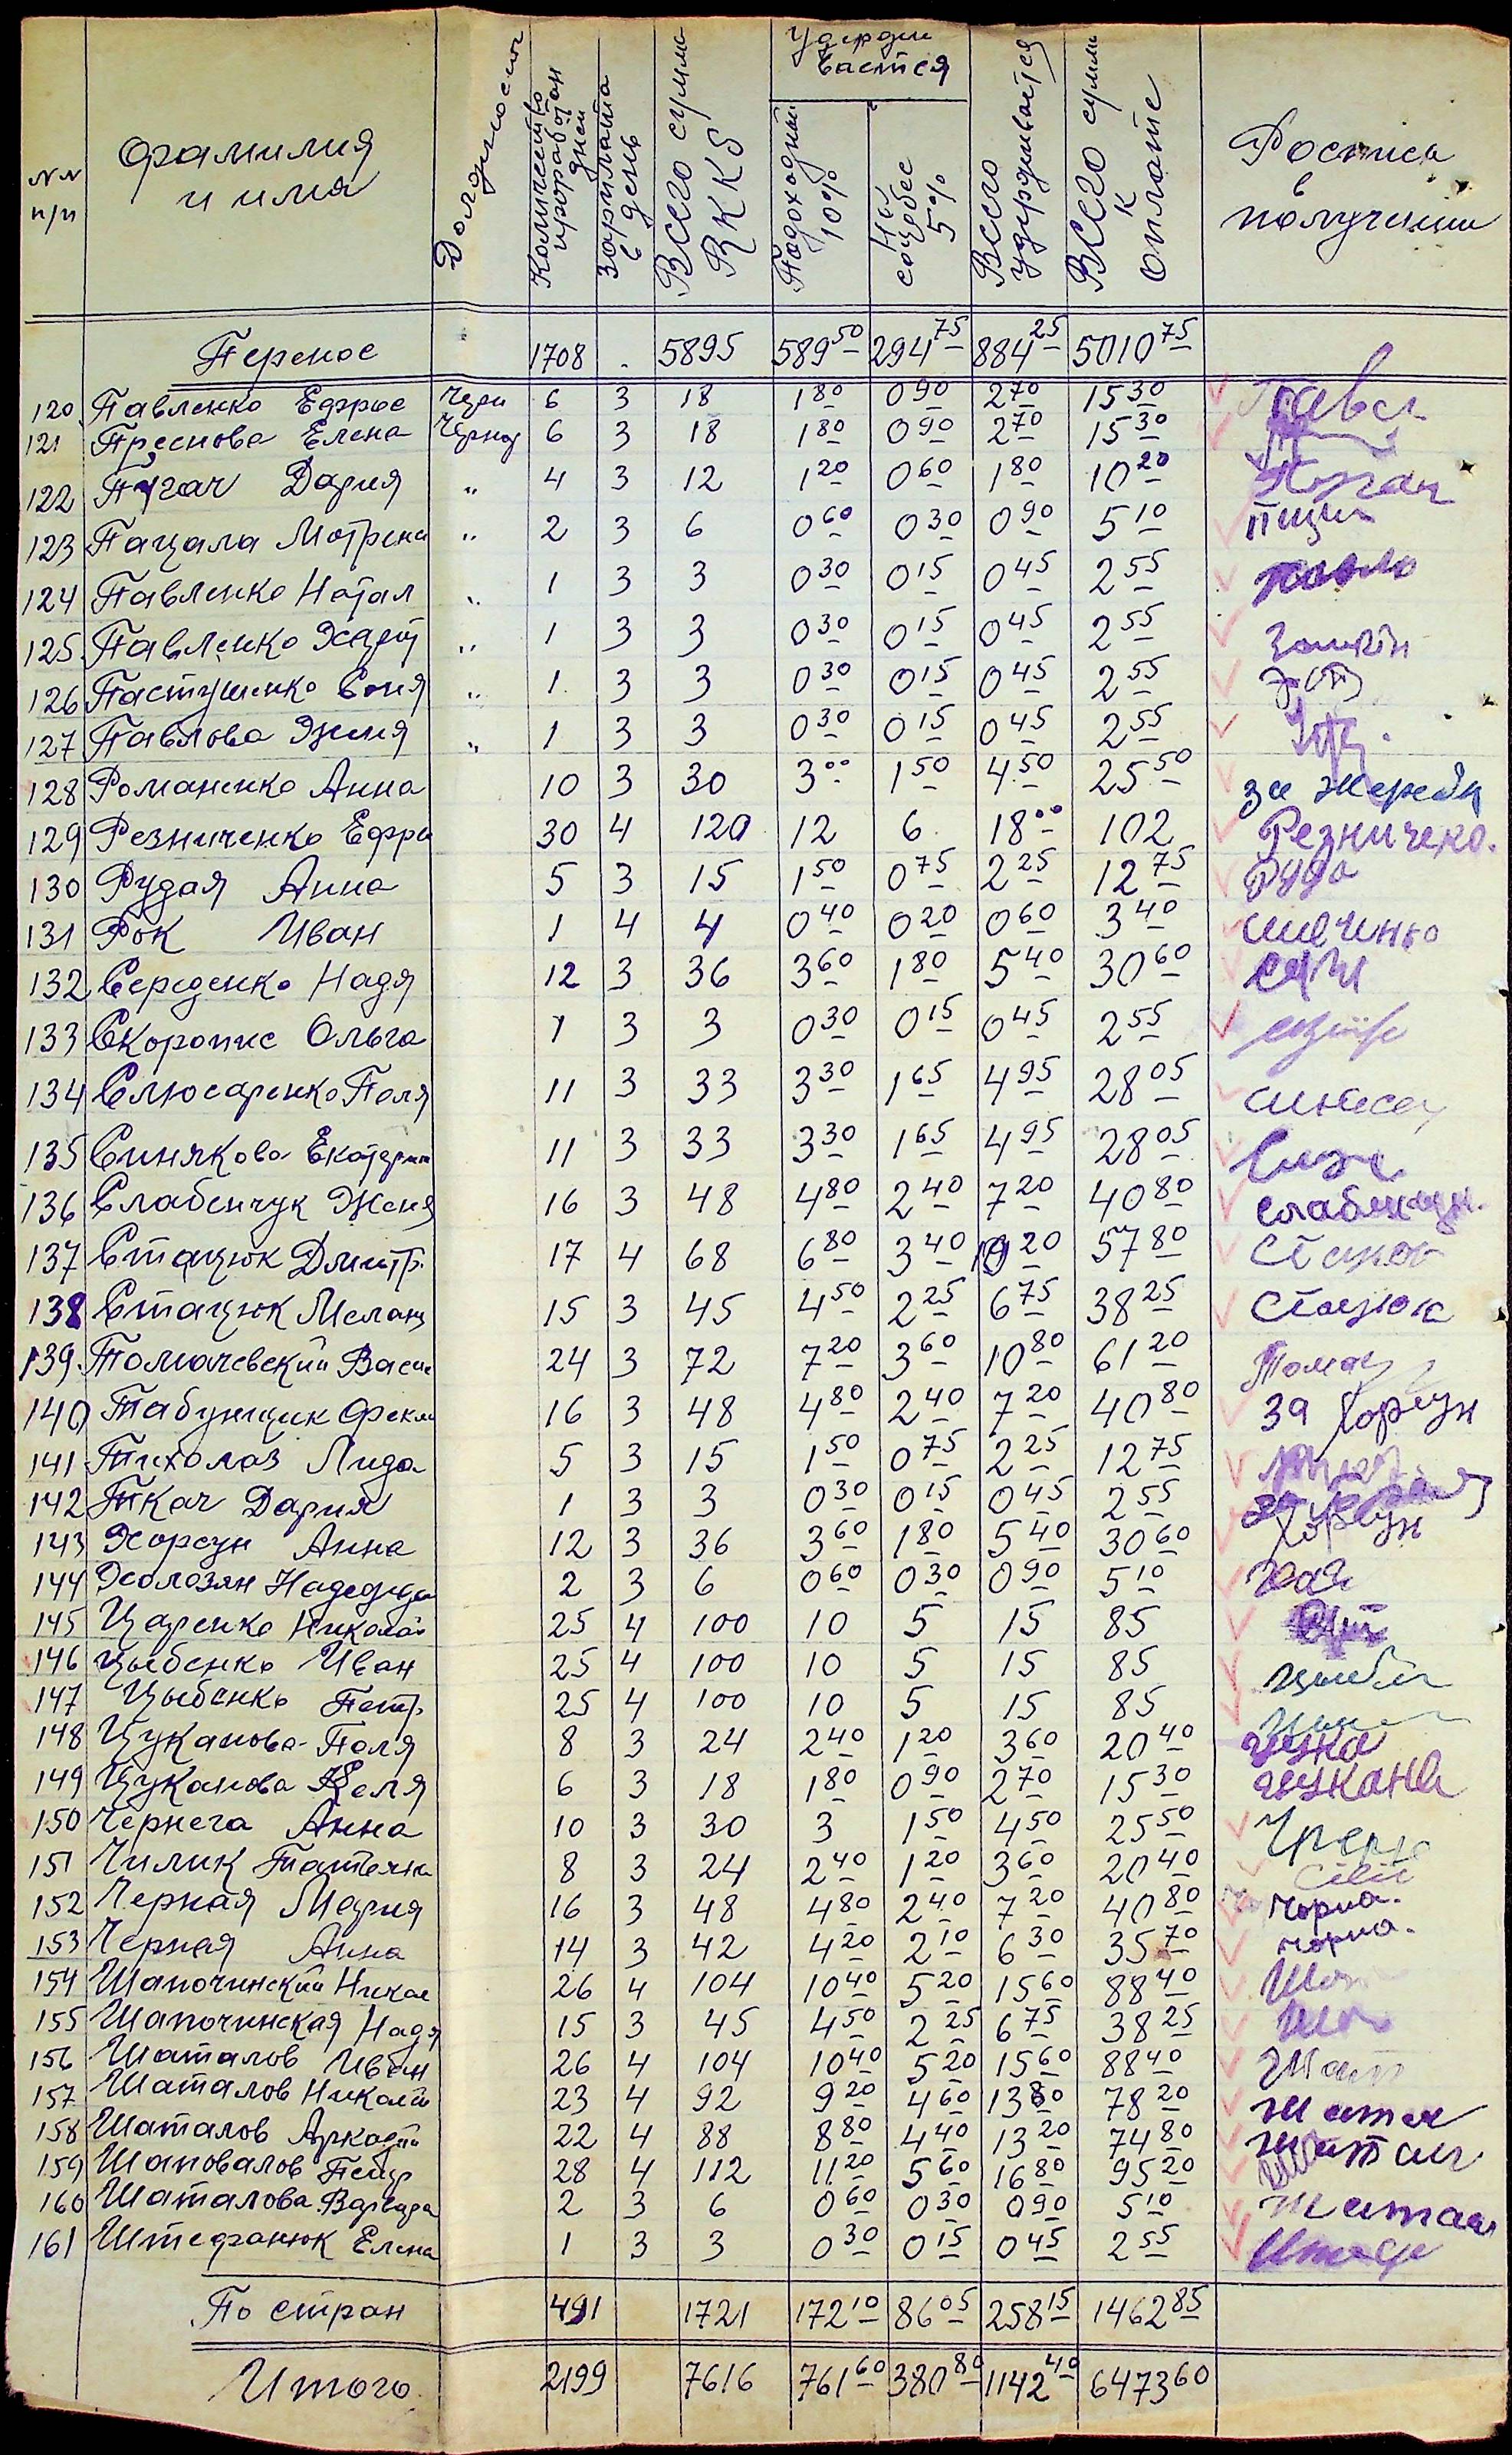 NN п/п
Фамилия и имя
Должность
Количество проработан дней
Зарплата в день
Всего сумма RKKS
Удержи вается
Подоходный 10%
На соцобес 5%
Всего удерживается
Всего сумма к оплате
Роспись в получении
Перенос 1708 . 5895 589 50 294 75 884 25 5010 75
120 Павленко Ефрос Черн 6 3 18 1 80 0 90 2 70 15 30 Павл
121 Преснова Елена Чернор 6 3 18 1 80 0 90 2 70 15 30
122 Пугач Дария " 4 3 12 1 20 0 60 1 80 10 20 Пугач
123 Пацала Мотрена " 2 3 6 0 60 0 30 0 90 5 10
124 Павленко Натал " 1 3 3 0 30 0 15 0 45 2 55 павло
125 Павленко Харит " 1 3 3 0 30 0 15 0 45 2 55
126 Пастушенко Соня " 1 3 3 0 30 0 15 0 45 2 55
127 Павлова Женя " 1 3 3 0 30 0 15 0 45 2 55
128 Романенко Анна 10 3 30 3 00 1 50 4 50 25 50 за
129 Резниченко Ефро 30 4 120 12 6 18 00 102 Резничеко.
130 Рудая Анна 5 3 15 1 50 0 75 2 25 12 75 Руда
131 Рок Иван 1 4 4 0 40 0 20 0 60 3 40
132 Середенко Надя 12 3 36 3 60 1 80 5 40 30 60
133 Скоропис Ольга 1 3 3 0 30 0 15 0 45 2 55
134 Слюсаренко Поля 11 3 33 3 30 1 65 4 95 28 05
135 Синякова Екатерин 11 3 33 3 30 1 65 4 95 28 05
136 Слабенчук Женя 16 3 48 4 80 2 40 7 20 40 80
137 Стацюк Дмитр. 17 4 68 6 80 3 40 10 20 57 80
138 Стацюк Мелань 15 3 45 4 50 2 25 6 75 38 25 Стацюк
139 Томачевский Васи 24 3 72 7 20 3 60 10 80 61 20 Томач
140 Табунщик Фекла 16 3 48 4 80 2 40 7 20 40 80 за Хорсун
141 Тихолаз Лида 5 3 15 1 50 0 75 2 25 12 75
142 Ткач Дария 1 3 3 0 30 0 15 0 45 2 55
143 Хорсун Анна 12 3 36 3 60 1 80 5 40 30 60 Хорсун
144 Холозян Надежда 2 3 6 0 60 0 30 0 90 5 10
145 Царенко Николай 25 4 100 10 5 15 85
146 Цыбенко Иван 25 4 100 10 5 15 85
147 Цыбенко Петр 25 4 100 10 5 15 85
148 Цуканова Поля 8 3 24 2 40 1 20 3 60 20 40 цука
149 Цуканова Леля 6 3 18 1 80 0 90 2 70 15 30
150 Чернега Анна 10 3 30 3 1 50 4 50 25 50
151 Чилик Татьяна 8 3 24 2 40 1 20 3 60 20 40
152 Черная Мария 16 3 48 4 80 2 40 7 20 40 80 Чорна.
153 Черная Анна 14 3 42 4 20 2 10 6 30 35 70 Чорна.
154 Шапочинский Никол 26 4 104 10 40 5 20 15 60 88 40
155 Шапочинская Надя 15 3 45 4 50 2 25 6 75 38 25
156 Шаталов Иван 26 4 104 10 40 5 20 15 60 88 40
157 Шаталов Николай 23 4 92 9 20 4 60 13 80 78 20
158 Шаталов Аркадий 22 4 88 8 80 4 40 13 20 74 80
159 Шаповалов Петр 28 4 112 11 20 5 60 16 80 95 20
160 Шаталова Варвара 2 3 6 0 60 0 30 0 90 5 10
161 Штефанюк Елена 1 3 3 0 30 0 15 0 45 2 55
По стран 491 1721 172 10 86 05 258 15 1462 85
Итого 2199 7616 761 60 380 80 1142 40 6473 60